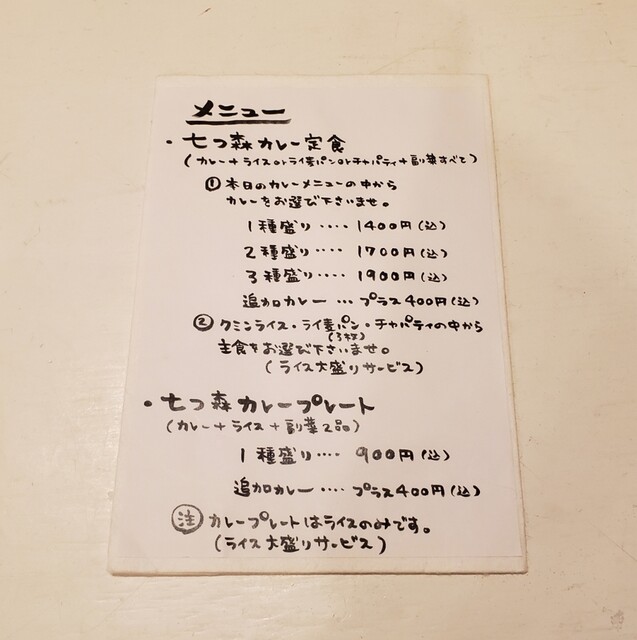 メニュー
・七つ森カレー定食
(カレー+ライスorライ麦パンorチャパティ+副菜すべて)
① 本日のカレーメニューの中から
カレーをお選び下さいませ。
1種盛り‥‥1400円(込)
2種盛り‥‥1700円(込)
3種盛り‥‥1900円(込)
追加カレー…プラス400円(込)
② クミンライス・ライ麦パン・チャパティの中から
(3枚)
主食をお選び下さいませ。
(ライス大盛りサービス)
・七つ森カレープレート
(カレー+ライス+副菜2品)
1種盛り‥‥900円(込)
追加カレー‥‥プラス400円(込)
㊟ カレープレートはライスのみです。
(ライス大盛りサービス)